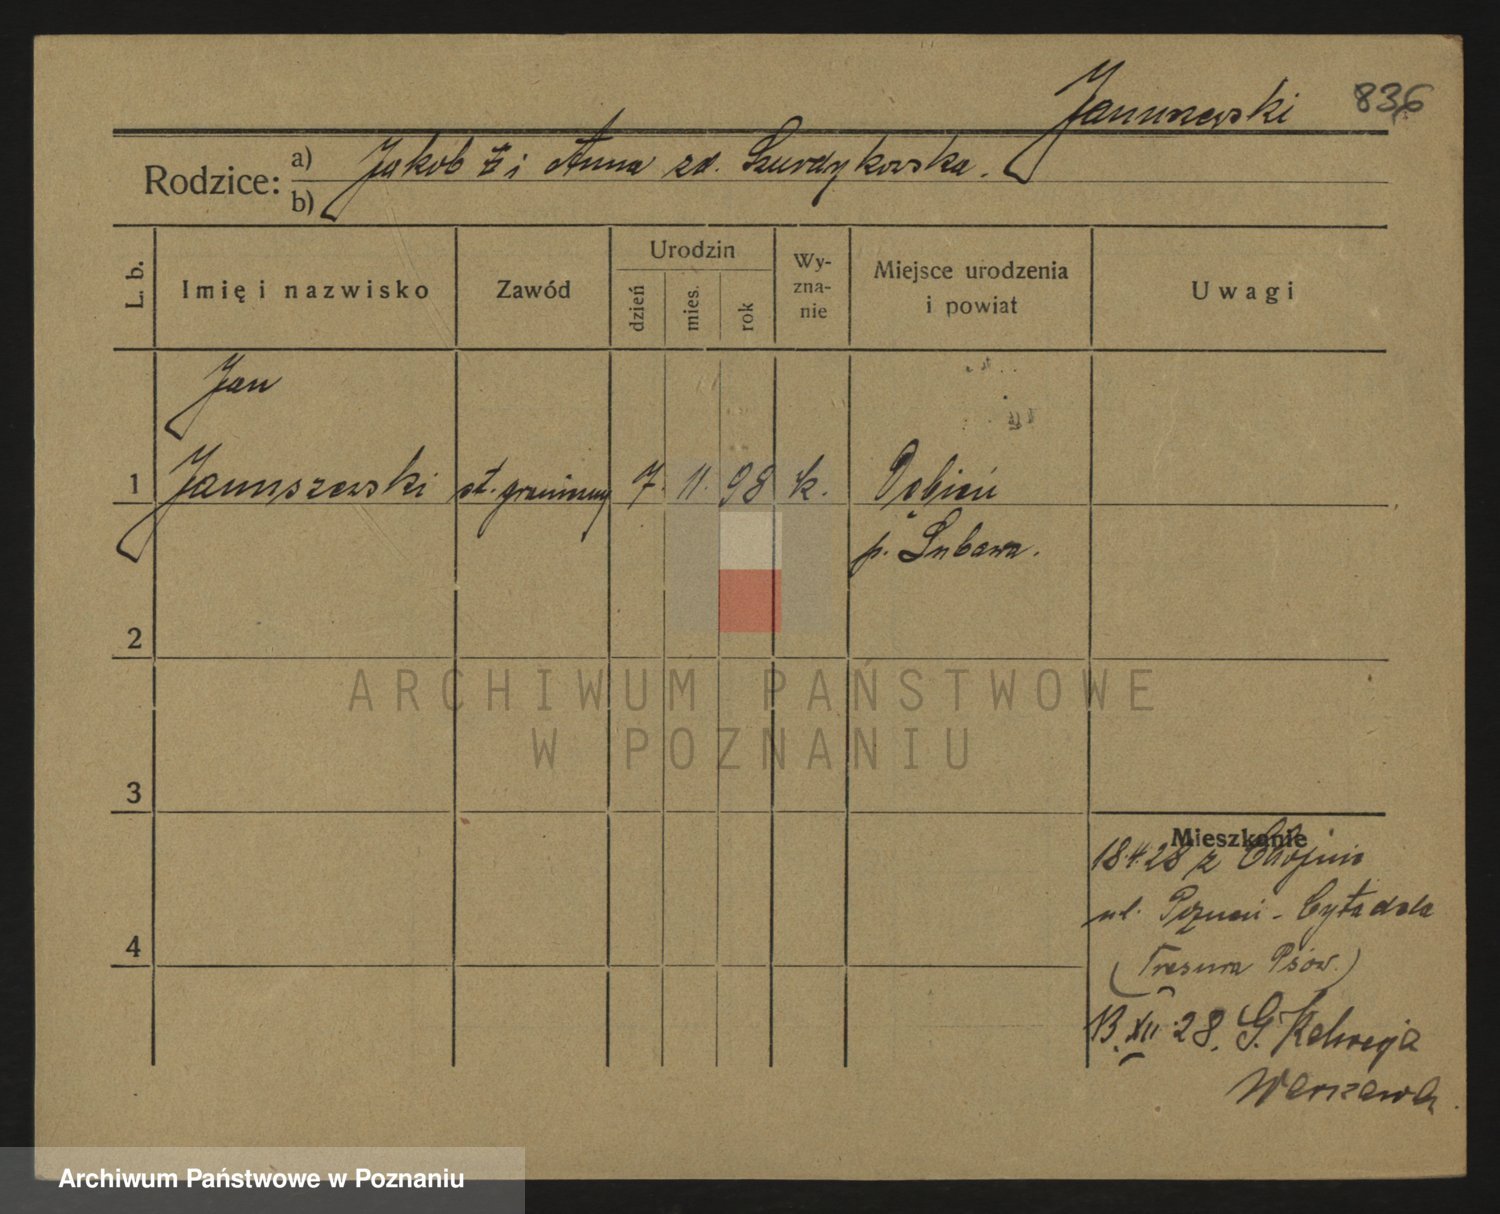 Januszewski 836
Rodzice: a) Jakób i Anna zd. Szurdykowska.
b)
L. b.
Imię i nazwisko
Zawód
Urodzin
dzień
mies.
rok
Wy-
zna-
nie
Miejsce urodzenia
i powiat
Uwagi
Jan
1 Januszewski st. graniczny 7. 11. 98 k.
p. Lubawa.
2
ARCHIWUM PAŃSTWOWE
W POZNANIU
3
Mieszkanie
18.4.28 z
ul. Poznań - Cytadela
4
(Tresura Psów.)
13.XII.28. G. Kalwarja
Warszawa.
Archiwum Państwowe w Poznaniu